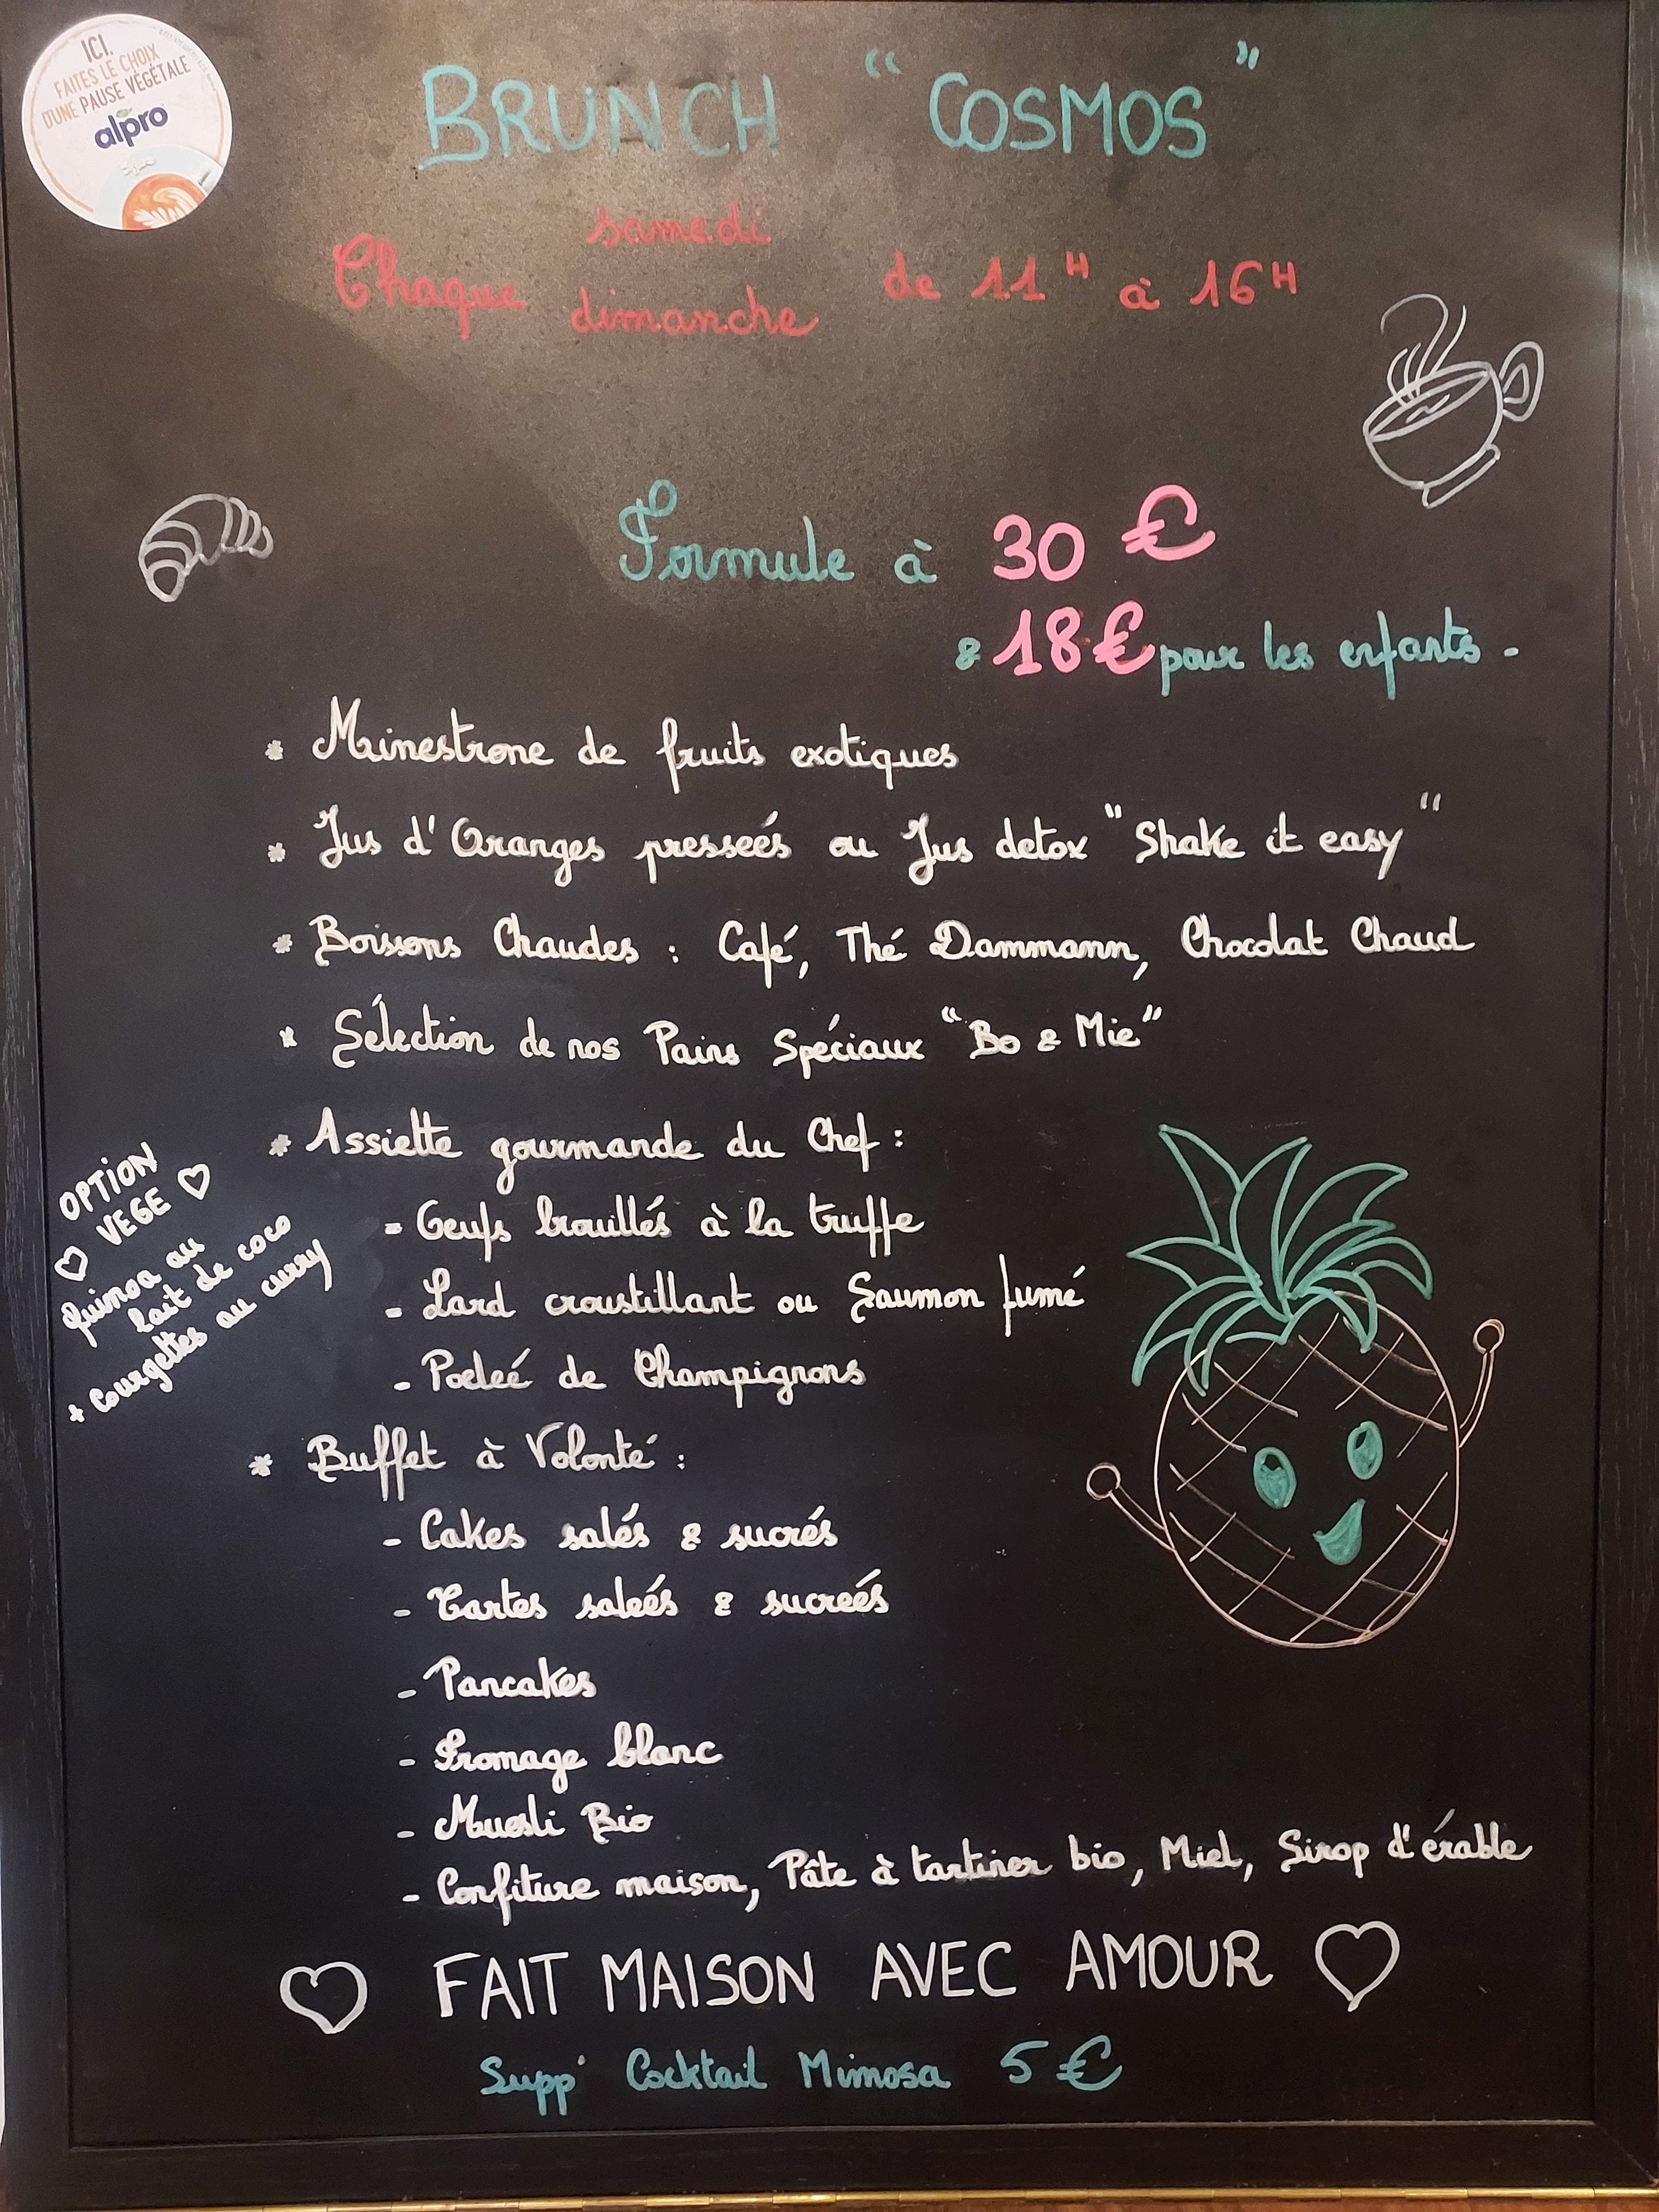 ICI,
FAITES LE CHOIX
D'UNE PAUSE VÉGÉTALE
alpro
BRUNCH "COSMOS"
samedi
Chaque dimanche de 11H à 16H
Formule à 30 €
& 18€ pour les enfants -
* Minestrone de fruits exotiques
* Jus d'Oranges presseés ou Jus detox "Shake it easy"
* Boissons Chaudes : Café, Thé Dammann, Chocolat Chaud
* Sélection de nos Pains Spéciaux "Bo & Mie"
* Assiette gourmande du Chef :
- Oeufs brouillés à la truffe
- Lard croustillant ou Saumon fumé
- Poeleé de Champignons
OPTION
♡ VEGE ♡
quinoa au
lait de coco
+ courgettes au curry
* Buffet à Volonté :
- Cakes salés & sucrés
- Tartes saleés & sucreés
- Pancakes
- Fromage blanc
- Muesli Bio
- Confiture maison, Pâte à tartiner bio, Miel, Sirop d'érable
♡ FAIT MAISON AVEC AMOUR ♡
Supp' Cocktail Mimosa 5 €